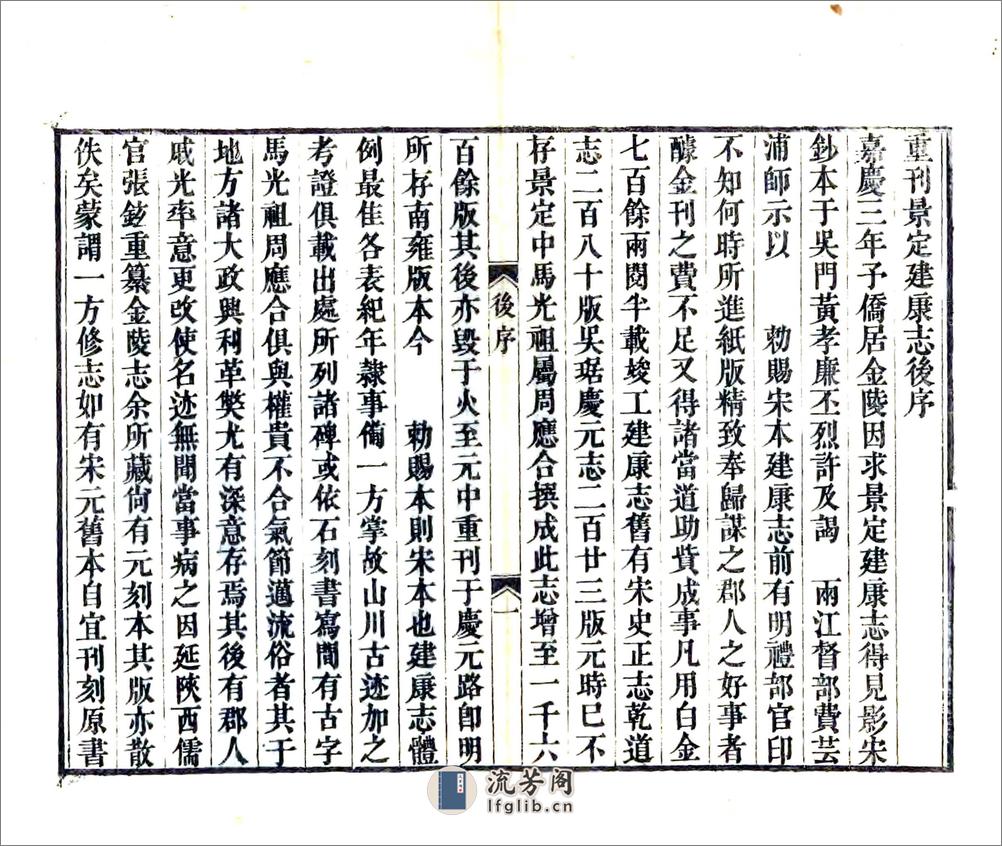 重刊景定建康志後序
嘉慶三年予僑居金陵因求景定建康志得見影宋
鈔本于吳門黃孝廉丕烈許及謁　兩江督部費芸
浦師示以　　勅賜宋本建康志前有明禮部官印
不知何時所進紙版精致奉歸謀之郡人之好事者
醵金刊之費不足又得諸當道助貲成事凡用白金
七百餘兩閱半載竣工建康志舊有宋史正志乾道
志二百八十版吳琚慶元志二百廿三版元時巳不
存景定中馬光祖屬周應合撰成此志增至一千六
後序
一
百餘版其後亦毀于火至元中重刊于慶元路卽明
所存南雍版本今　　勅賜本則宋本也建康志體
例最佳各表紀年隸事備一方掌故山川古迹加之
考證俱載出處所列諸碑或依石刻書寫間有古字
馬光祖周應合俱與權貴不合氣節邁流俗者其于
地方諸大政興利革獘尤有深意存焉其後有郡人
戚光率意更改使名迹無聞當事病之因延陝西儒
官張鉉重纂金陵志余所藏尙有元刻本其版亦散
佚矣蒙謂一方修志如有宋元舊本自宜刊刻原書
流芳阁
lfglib.cn